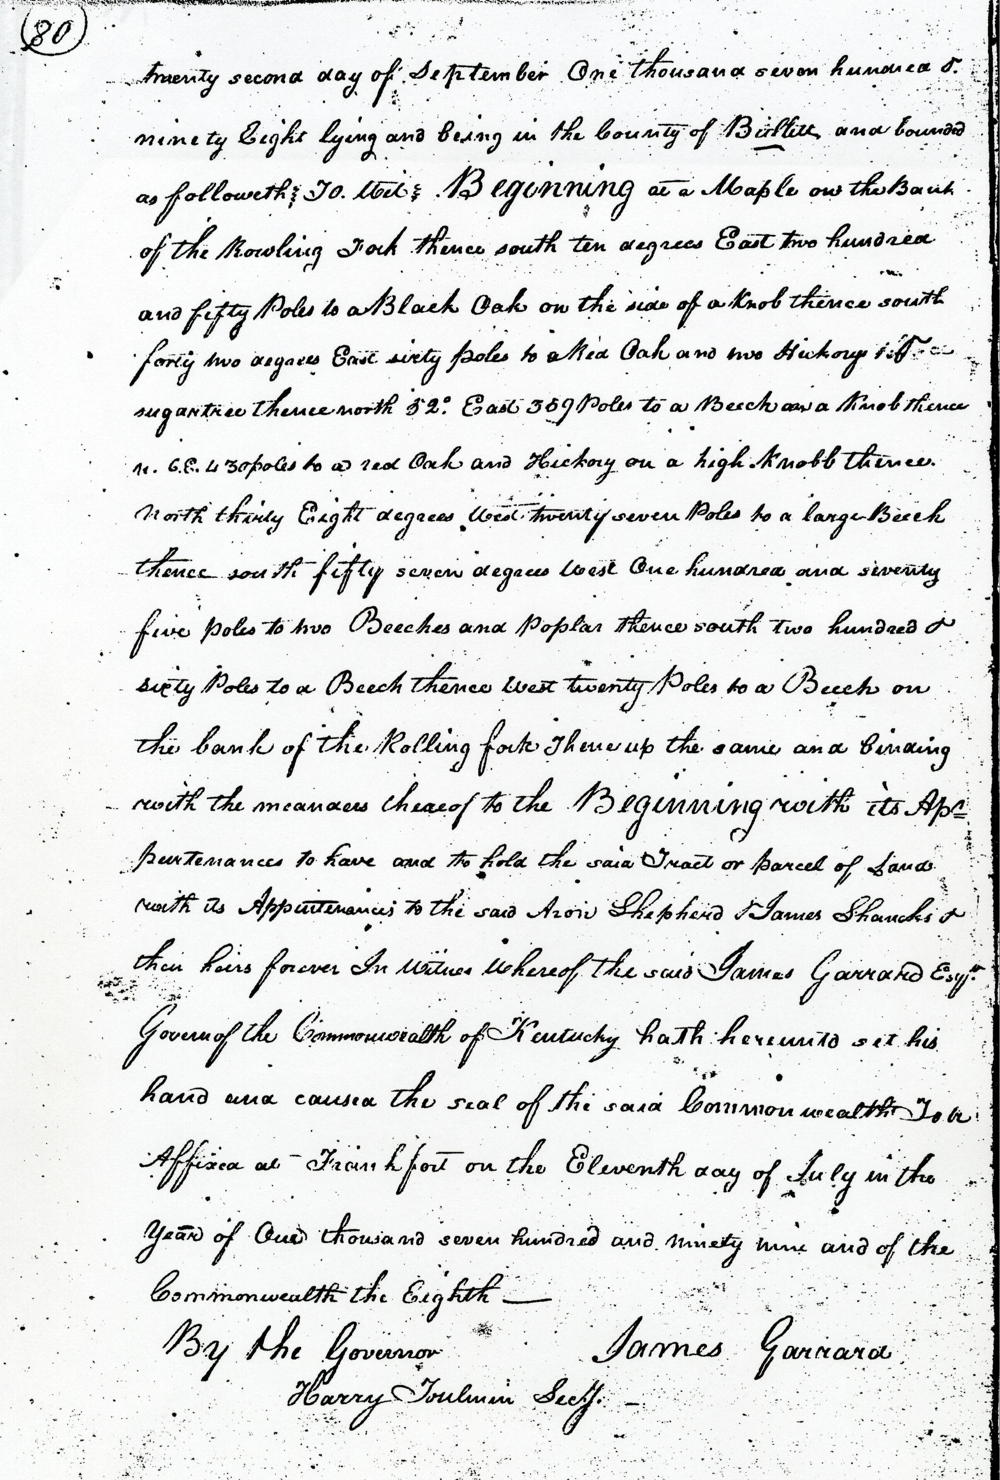 80
twenty second day of September One thousand seven hundred &
ninety Eight lying and being in the County of Bullitt and bounded
as followeth; To. Wit; Beginning at a Maple on the Bank
of the Rowling Fork thence south ten degrees East two hundred
and fifty Poles to a Black Oak on the side of a Knob thence south
forty two degrees East sixty poles to a Red Oak and two Hickorys &
sugartree thence north 52° East 359 Poles to a Beech on a Knob thence
n. 6.E. 430 poles to a red Oak and Hickory on a high Knobb thence
North thirty Eight degrees West twenty seven Poles to a large Beech
thence south fifty seven degrees West One hundred and seventy
five poles to two Beeches and Poplar thence south two hundred &
sixty Poles to a Beech thence West twenty Poles to a Beech on
the bank of the Rolling fork Thence up the same and binding
with the meanders thereof to the Beginning with its Ap=
purtenances to have and to hold the said Tract or parcel of Land
with its Appurtenances to the said Aron Shepherd & James Shanks &
their heirs forever In Witness Whereof the said James Garrard Esqr.
Govern of the Commonwealth of Kentucky hath hereunto set his
hand and caused the seal of the said Commonwealth To be
Affixed at Frankfort on the Eleventh day of July in the
Year of Our thousand seven hundred and ninety nine and of the
Commonwealth the Eighth
By the Governor James Garrard
Harry Toulmin Secy.